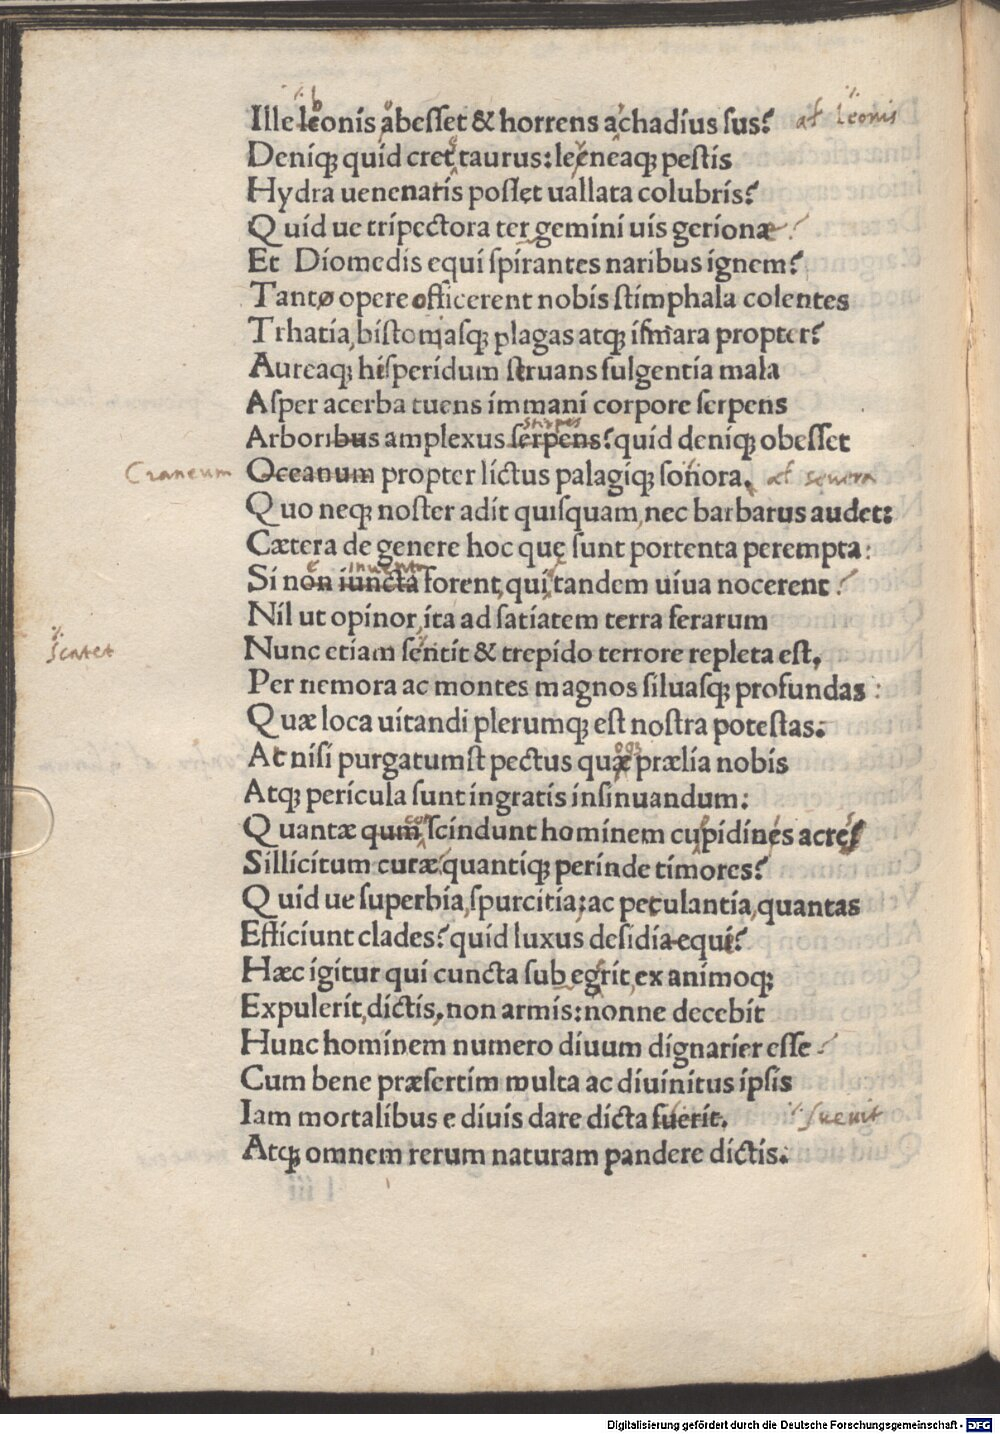 Ille leonis abesset & horrens achadius sus? at leonis
Deniq; quid cret taurus: leeneaq; pestis
Hydra uenenatis posset uallata colubris?
Quid ue tripectora ter gemini uis gerionæ?
Et Diomedis equi spirantes naribus ignem?
Tanto opere officerent nobis stimphala colentes
Trhatia, bistoniasq; plagas atq; ismara propter?
Aureaq; hisperidum seruans fulgentia mala
Asper acerba tuens immani corpore serpens
stirpes
Arboribus amplexus serpens? quid deniq; obesset
Craneum Oceanum propter lictus palagiq; sonora. at seuera
Quo neq; noster adit quisquam, nec barbarus audet:
Cætera de genere hoc quę sunt portenta perempta:
inuenta
Si non iuncta forent, qui tandem uiua nocerent?
Nil ut opinor, ita ad satiatem terra ferarum
scatet Nunc etiam sentit & trepido terrore repleta est,
Per nemora ac montes magnos siluasq; profundas:
Quæ loca uitandi plerumq; est nostra potestas:
At nisi purgatumst pectus quæ prælia nobis
Atq; pericula sunt ingratis insinuandum:
con
Quantæ qum scindunt hominem cupidines acres
Sillicitum curæ quantiq; perinde timores?
Quid ue superbia, spurcitia; ac petulantia, quantas
Efficiunt clades? quid luxus desidia equi?
Hæc igitur qui cuncta sub egrit, ex animoq;
Expulerit, dictis, non armis: nonne decebit
Hunc hominem numero diuum dignarier esse?
Cum bene præsertim multa ac diuinitus ipsis
Iam mortalibus e diuis dare dicta fuerit. sueuit
Atq; omnem rerum naturam pandere dictis.
Digitalisierung gefördert durch die Deutsche Forschungsgemeinschaft - DFG